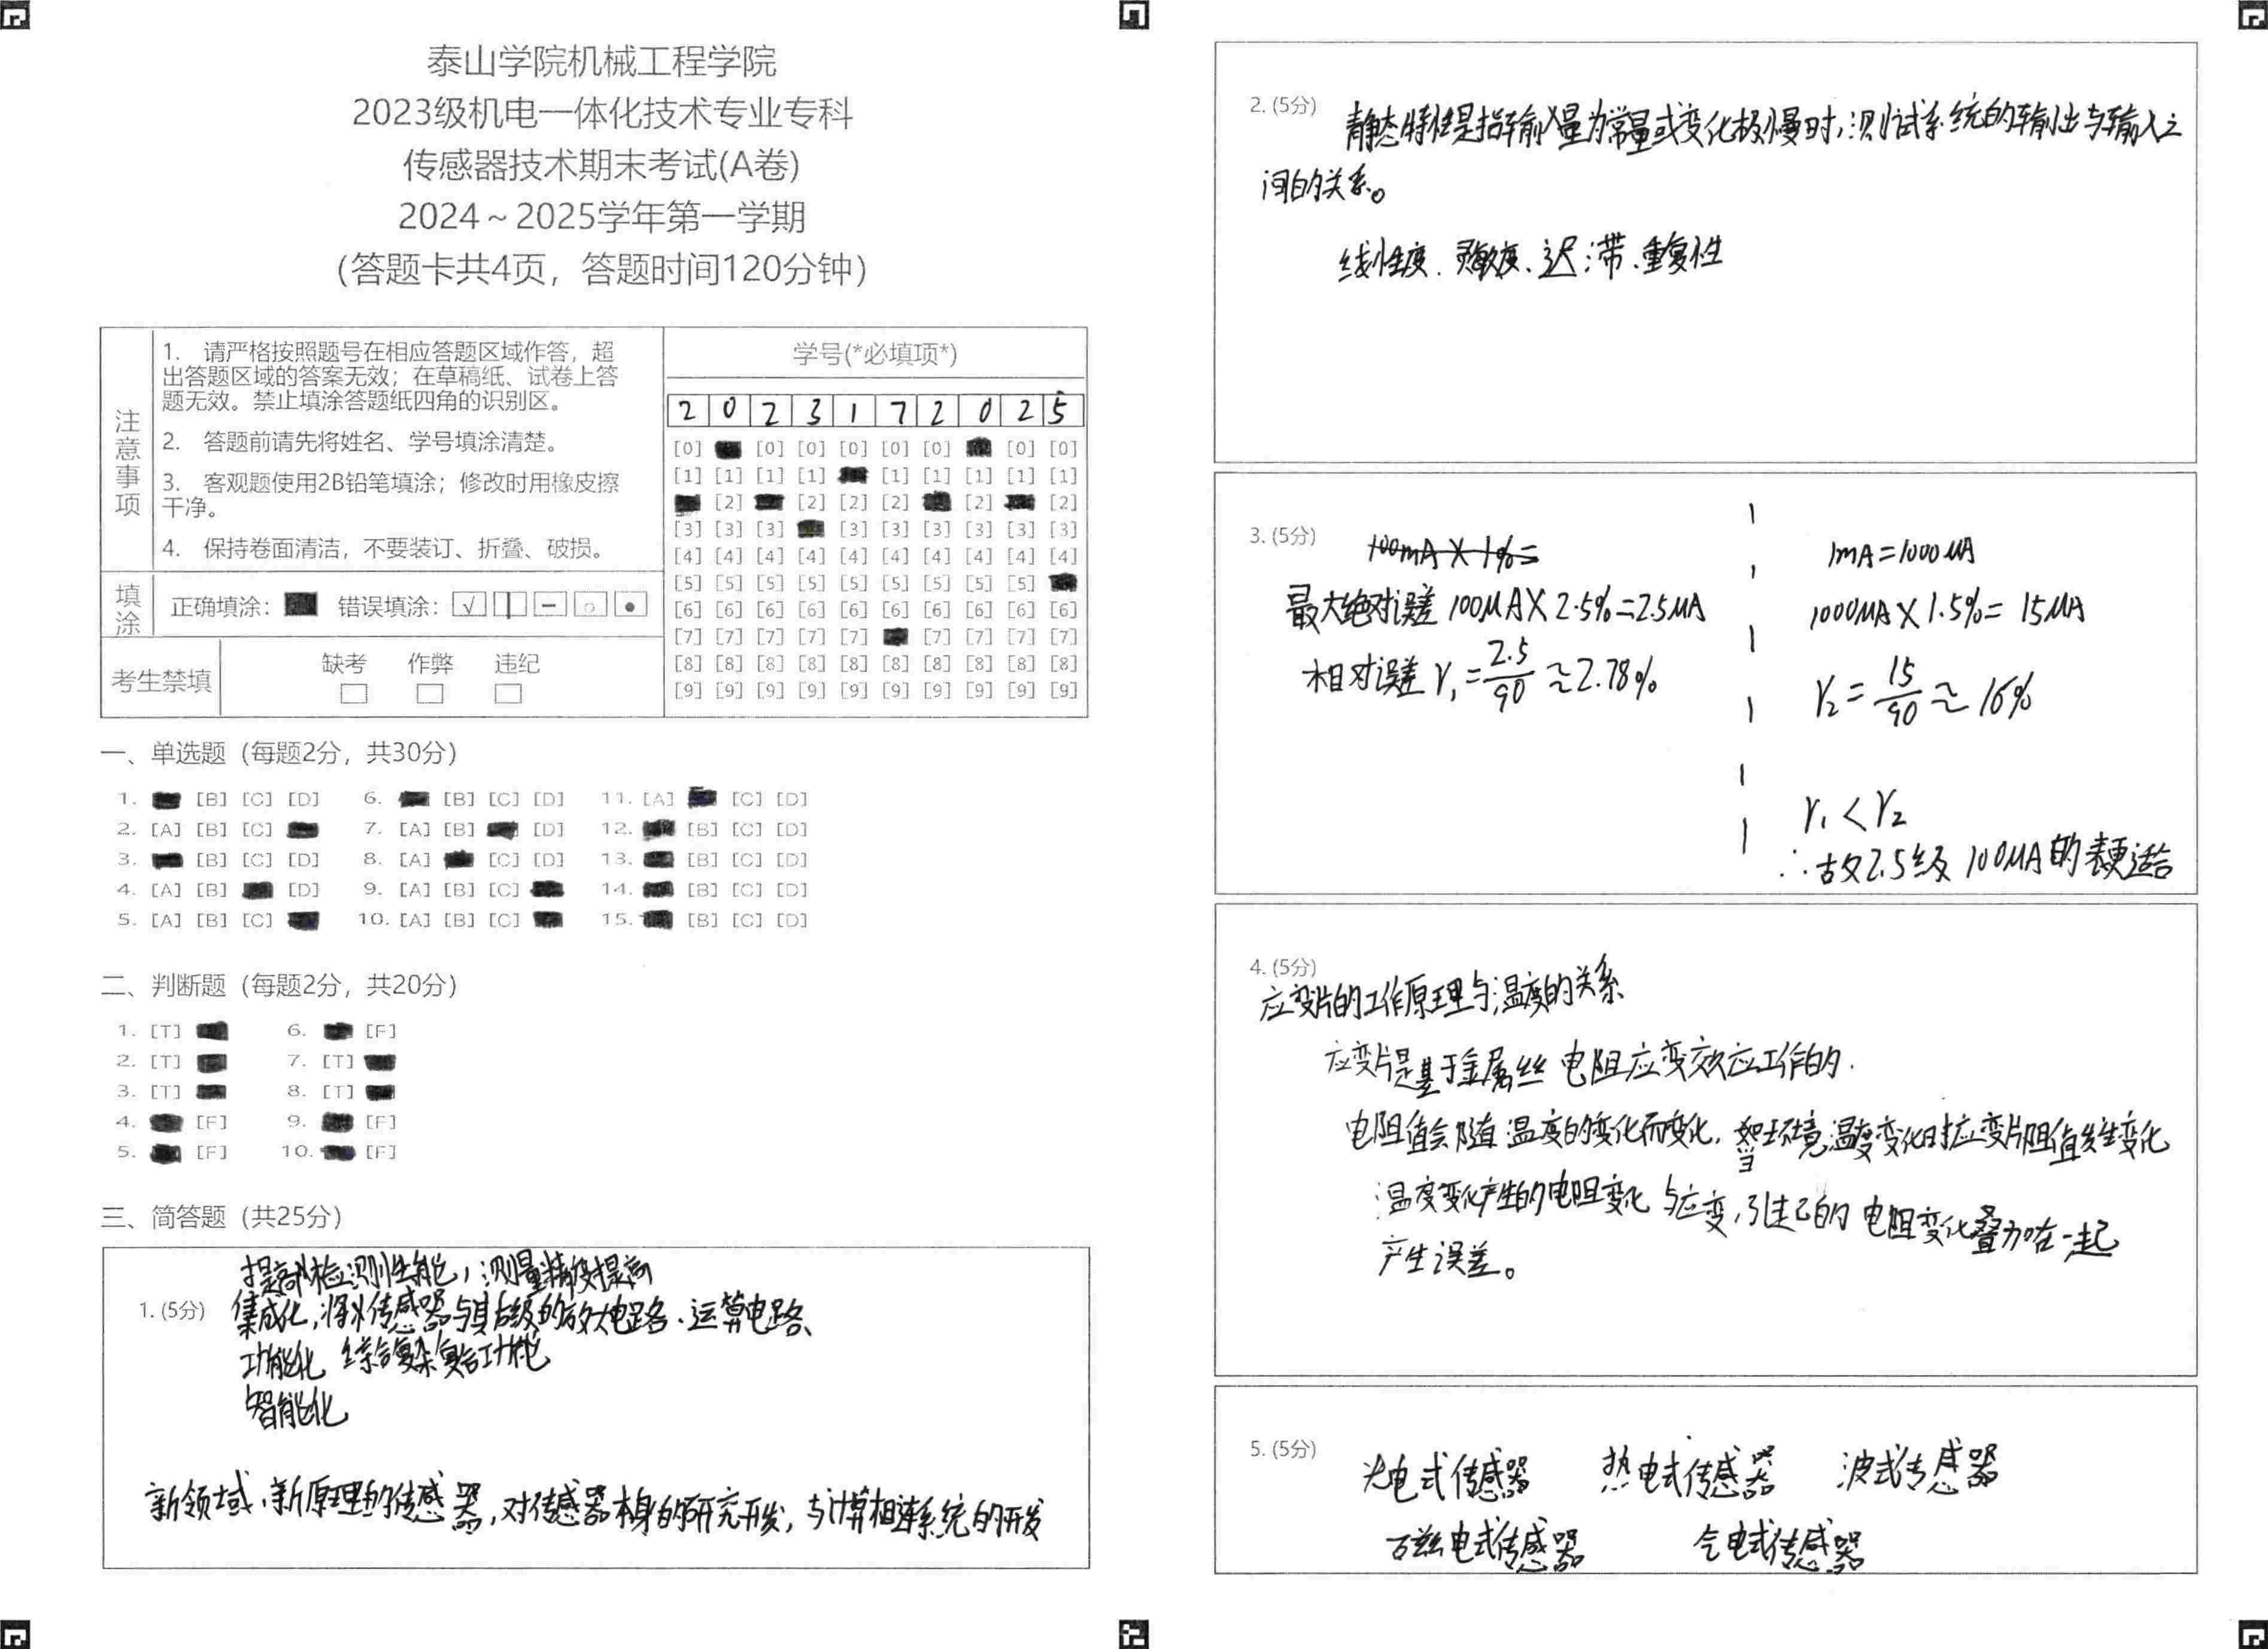 泰山学院机械工程学院
2023级机电一体化技术专业专科
传感器技术期末考试(A卷)
2024～2025学年第一学期
(答题卡共4页，答题时间120分钟)
注意事项
1. 请严格按照题号在相应答题区域作答，超
出答题区域的答案无效；在草稿纸、试卷上答
题无效。禁止填涂答题纸四角的识别区。
2. 答题前请先将姓名、学号填涂清楚。
3. 客观题使用2B铅笔填涂；修改时用橡皮擦
干净。
4. 保持卷面清洁，不要装订、折叠、破损。
填涂
正确填涂： 错误填涂：
考生禁填
缺考 作弊 违纪
学号(*必填项*)
2 0 2 3 1 7 2 0 2 5
[0] [0] [0] [0] [0] [0] [0] [0]
[1] [1] [1] [1] [1] [1] [1] [1] [1]
[2] [2] [2] [2] [2] [2]
[3] [3] [3] [3] [3] [3] [3] [3] [3]
[4] [4] [4] [4] [4] [4] [4] [4] [4] [4]
[5] [5] [5] [5] [5] [5] [5] [5] [5]
[6] [6] [6] [6] [6] [6] [6] [6] [6] [6]
[7] [7] [7] [7] [7] [7] [7] [7] [7]
[8] [8] [8] [8] [8] [8] [8] [8] [8] [8]
[9] [9] [9] [9] [9] [9] [9] [9] [9] [9]
一、单选题（每题2分，共30分）
1. [B] [C] [D] 6. [B] [C] [D] 11. [A] [C] [D]
2. [A] [B] [C] 7. [A] [B] [D] 12. [B] [C] [D]
3. [B] [C] [D] 8. [A] [C] [D] 13. [B] [C] [D]
4. [A] [B] [D] 9. [A] [B] [C] 14. [B] [C] [D]
5. [A] [B] [C] 10. [A] [B] [C] 15. [B] [C] [D]
二、判断题（每题2分，共20分）
1. [T] 6. [F]
2. [T] 7. [T]
3. [T] 8. [T]
4. [F] 9. [F]
5. [F] 10. [F]
三、简答题（共25分）
提高检测性能，测量精度提高
1. (5分) 集成化，将传感器与其后级的放大电路、运算电路、
功能化 综合复杂复合功能
智能化
新领域，新原理的传感器，对传感器本身的研究开发，与计算相连系统的开发
2. (5分) 静态特性是指输入量为常量或变化极慢时，测试系统的输出与输入之
间的关系。
线性度、灵敏度、迟滞、重复性
3. (5分) 100mA×1%=
最大绝对误差 100μA×2.5%=2.5μA
相对误差 γ₁=2.5/90≈2.78%
1mA=1000μA
1000μA×1.5%=15μA
γ₂=15/90≈16%
γ₁<γ₂
∴故2.5级100μA的表更适合
4. (5分)
应变片的工作原理与温度的关系
应变片是基于金属丝电阻应变效应工作的.
电阻值会随温度的变化而变化，当环境温度变化时应变片阻值发生变化
温度变化产生的电阻变化与应变引起的电阻变化叠加在一起
产生误差。
5. (5分) 光电式传感器 热电式传感器 波式传感器
磁电式传感器 气电式传感器